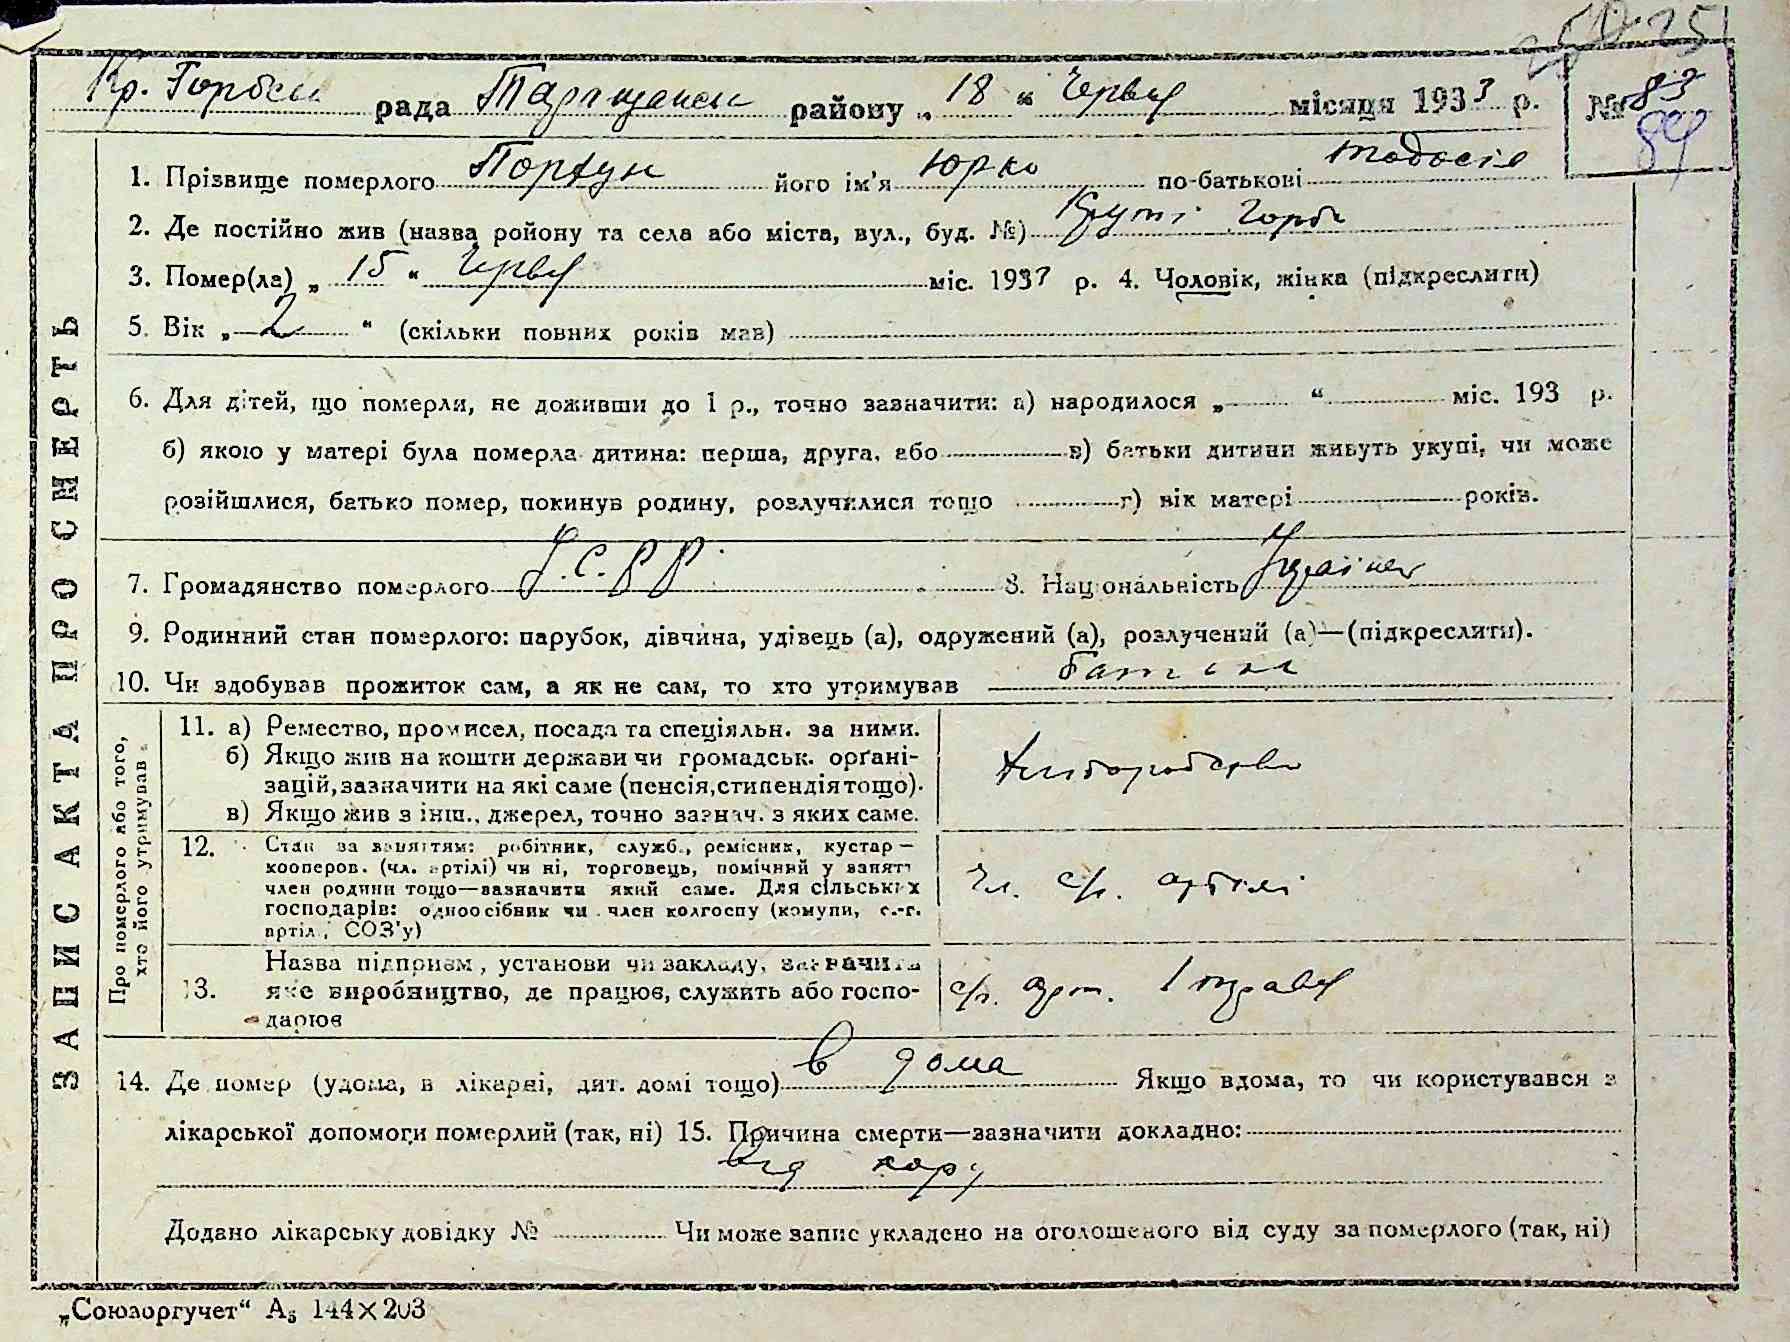 Кр. Горбськ рада Таращанськ району „ 18 “ Червня місяця 1933 р. № 83
84
1. Прізвище померлого Портун його ім'я Юрко по-батькові Тодосів
2. Де постійно жив (назва ройону та села або міста, вул., буд. №) Круті Горби
3. Помер(ла) „ 15 “ Червня міс. 1933 р. 4. Чоловік, жінка (підкреслити)
5. Вік „ 2 “ (скільки повних років мав)
6. Для дітей, що померли, не доживши до 1 р., точно зазначити: а) народилося „ “ міс. 193 р.
б) якою у матері була померла дитина: перша, друга, або в) батьки дитини живуть укупі, чи може
розійшлися, батько помер, покинув родину, розлучилися тощо г) вік матері років.
7. Громадянство померлого У.С.Р.Р. 8. Національність Українец
9. Родинний стан померлого: парубок, дівчина, удівець (а), одружений (а), розлучений (а)—(підкреслити).
10. Чи здобував прожиток сам, а як не сам, то хто утримував батьки
ЗАПИС АКТА ПРО СМЕРТЬ
Про померлого або того,
хто його утримував
11. а) Ремество, промисел, посада та спеціяльн. за ними.
б) Якщо жив на кошти держави чи громадськ. орґані-
зацій, зазначити на які саме (пенсія, стипендія тощо).
в) Якщо жив з інш., джерел, точно зазнач. з яких саме.
Хліборобство
12. Стан за заняттям: робітник, служб., ремісник, кустар—
кооперов. (чл. артілі) чи ні, торговець, помічний у занятт
член родини тощо—зазначити який саме. Для сільських
господарів: одноосібник чи член колгоспу (комуни, с.-г.
артіл., СОЗ'у)
Чл. с/г. артілі
13. Назва підприєм, установи чи закладу, зазначити
яке виробництво, де працює, служить або госпо-
дарює
с/г. арт. 1 травня
14. Де помер (удома, в лікарні, дит. домі тощо) в дома Якщо вдома, то чи користувався з
лікарської допомоги померлий (так, ні) 15. Причина смерти—зазначити докладно:
Від кору
Додано лікарську довідку № Чи може запис укладено на оголошеного від суду за померлого (так, ні)
„Союзоргучет“ А5 144×203